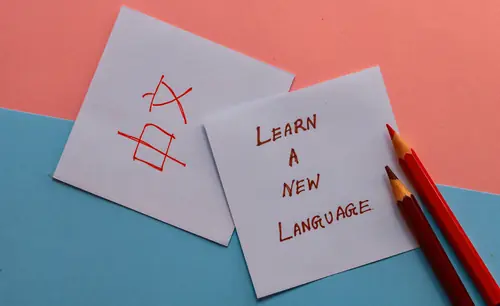 中文
LEARN
A
NEW
LANGUAGE